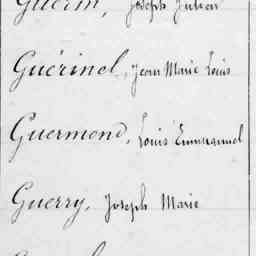 Guérin, Joseph Julien
Guérinel, Jean Marie Louis
Guermond, Louis Emmanuel
Guerry, Joseph Marie